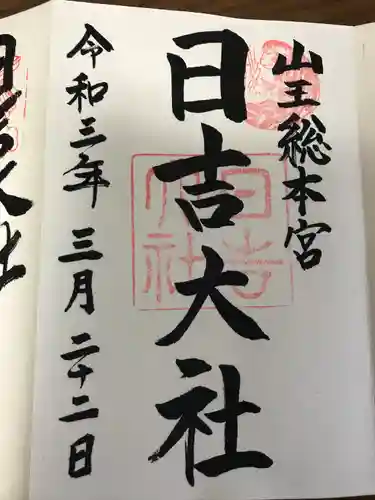 山王総本宮
日吉大社
令和三年三月二十二日
日吉大社
日吉大社